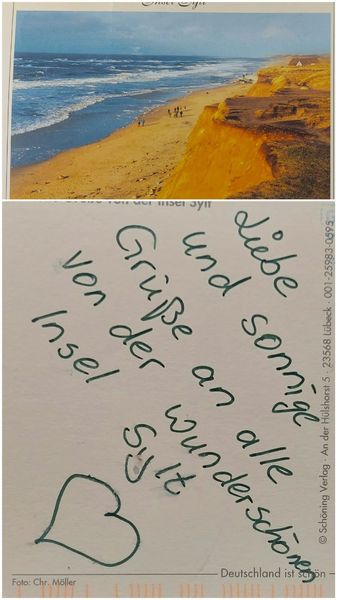 Insel Sylt
Grüße von der Insel Sylt
Liebe
und sonnige
Grüße an alle
von der wunderschönen
Insel Sylt
© Schöning Verlag · An der Hülshorst 5 · 23568 Lübeck · 001-25983-0595
Deutschland ist schön
Foto: Chr. Möller